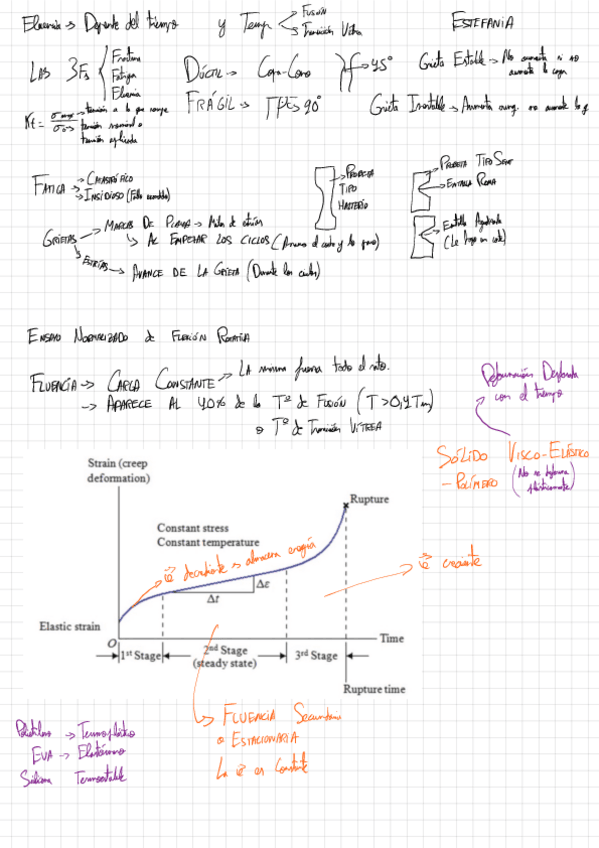 Fluencia → Depende del tiempo y Temp Fusión
Transición Vítrea
ESTEFANIA
LAS 3Fs Fractura
Fatiga
Fluencia
DÚCTIL → Copa-Cono 45°
FRÁGIL → 90°
Grieta Estable → No aumenta si no aumenta la carga
Grieta Inestable → Aumenta aunq. no aumente la
Kt = σmax → tensión a la que rompe
σo → tensión nominal o
tensión aplicada
FATIGA → CATASTRÓFICO
→ INSIDIOSO
PROBETA
TIPO
HALTERIO
PROBETA TIPO
ENTALLA ROMA
Entalla Aguda
GRIETAS → MARCAS DE PLAYA →
↳ AL EMPEZAR LOS CICLOS (
ESTRÍAS → AVANCE DE LA GRIETA (Durante los ciclos)
ENSAYO NORMALIZADO de FLEXIÓN ROTATIVA
FLUENCIA → CARGA CONSTANTE → LA misma fuerza todo el rato.
→ APARECE AL 40% de la Tº de FUSIÓN (T>0,4Tm)
o Tº de Transición VÍTREA
Deformación Diferida
con el tiempo
SÓLIDO VISCO-ELÁSTICO
- POLÍMERO (No se deforma
plásticamente)
Strain (creep
deformation)
Rupture
Constant stress
Constant temperature
ė decreciente → almacena energía
ė creciente
Δε
Δt
Elastic strain
O
Time
1st Stage
2nd Stage
(steady state)
3rd Stage
Rupture time
FLUENCIA Secundaria
o ESTACIONARIA
La ė es Constante
→ Termoplástico
EVA → Elastómero
Silicona Termoestable